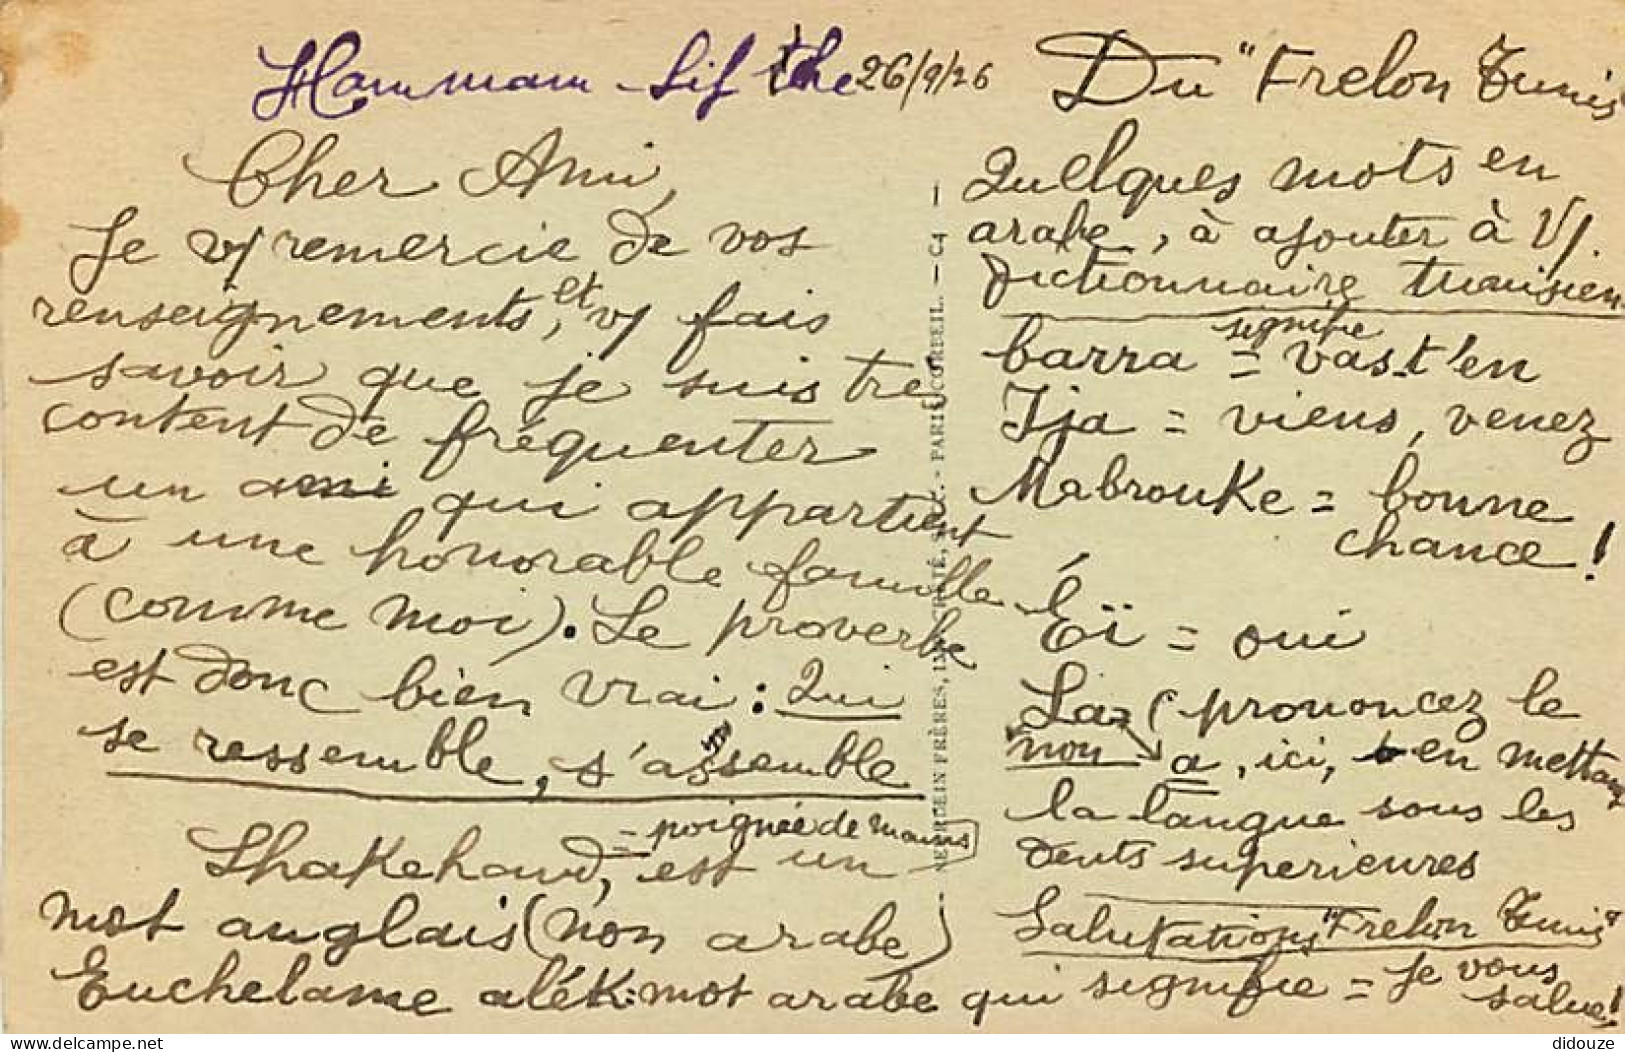 Hammam-Lif the 26/9/26
Cher Ami,
Je v/ remercie de vos
renseignements, et v/ fais
savoir que je suis tre
content de fréquenter
un ami qui appartient
à une honorable famille
(comme moi). Le proverbe
est donc bien vrai : Qui
se ressemble, s'assemble
= poignée de mains
Shakehand, est un
mot anglais (non arabe)
Euchelame alék : mot arabe qui signifie = je vous
salue !
Du "Frelon Tunis
Quelques mots en
arabe, à ajouter à V/.
dictionnaire tunisien
signifie
barra = vas-t'en
Ija = viens, venez
Mabrouke = bonne
chance !
Éï = oui
La (prononcez le
non a, ici, en mettant
la langue sous les
dents superieures
Salutations "Frelon Tunis"
NEURDEIN FRÈRES, - PARIS CORBEIL. - C1 -
didouze